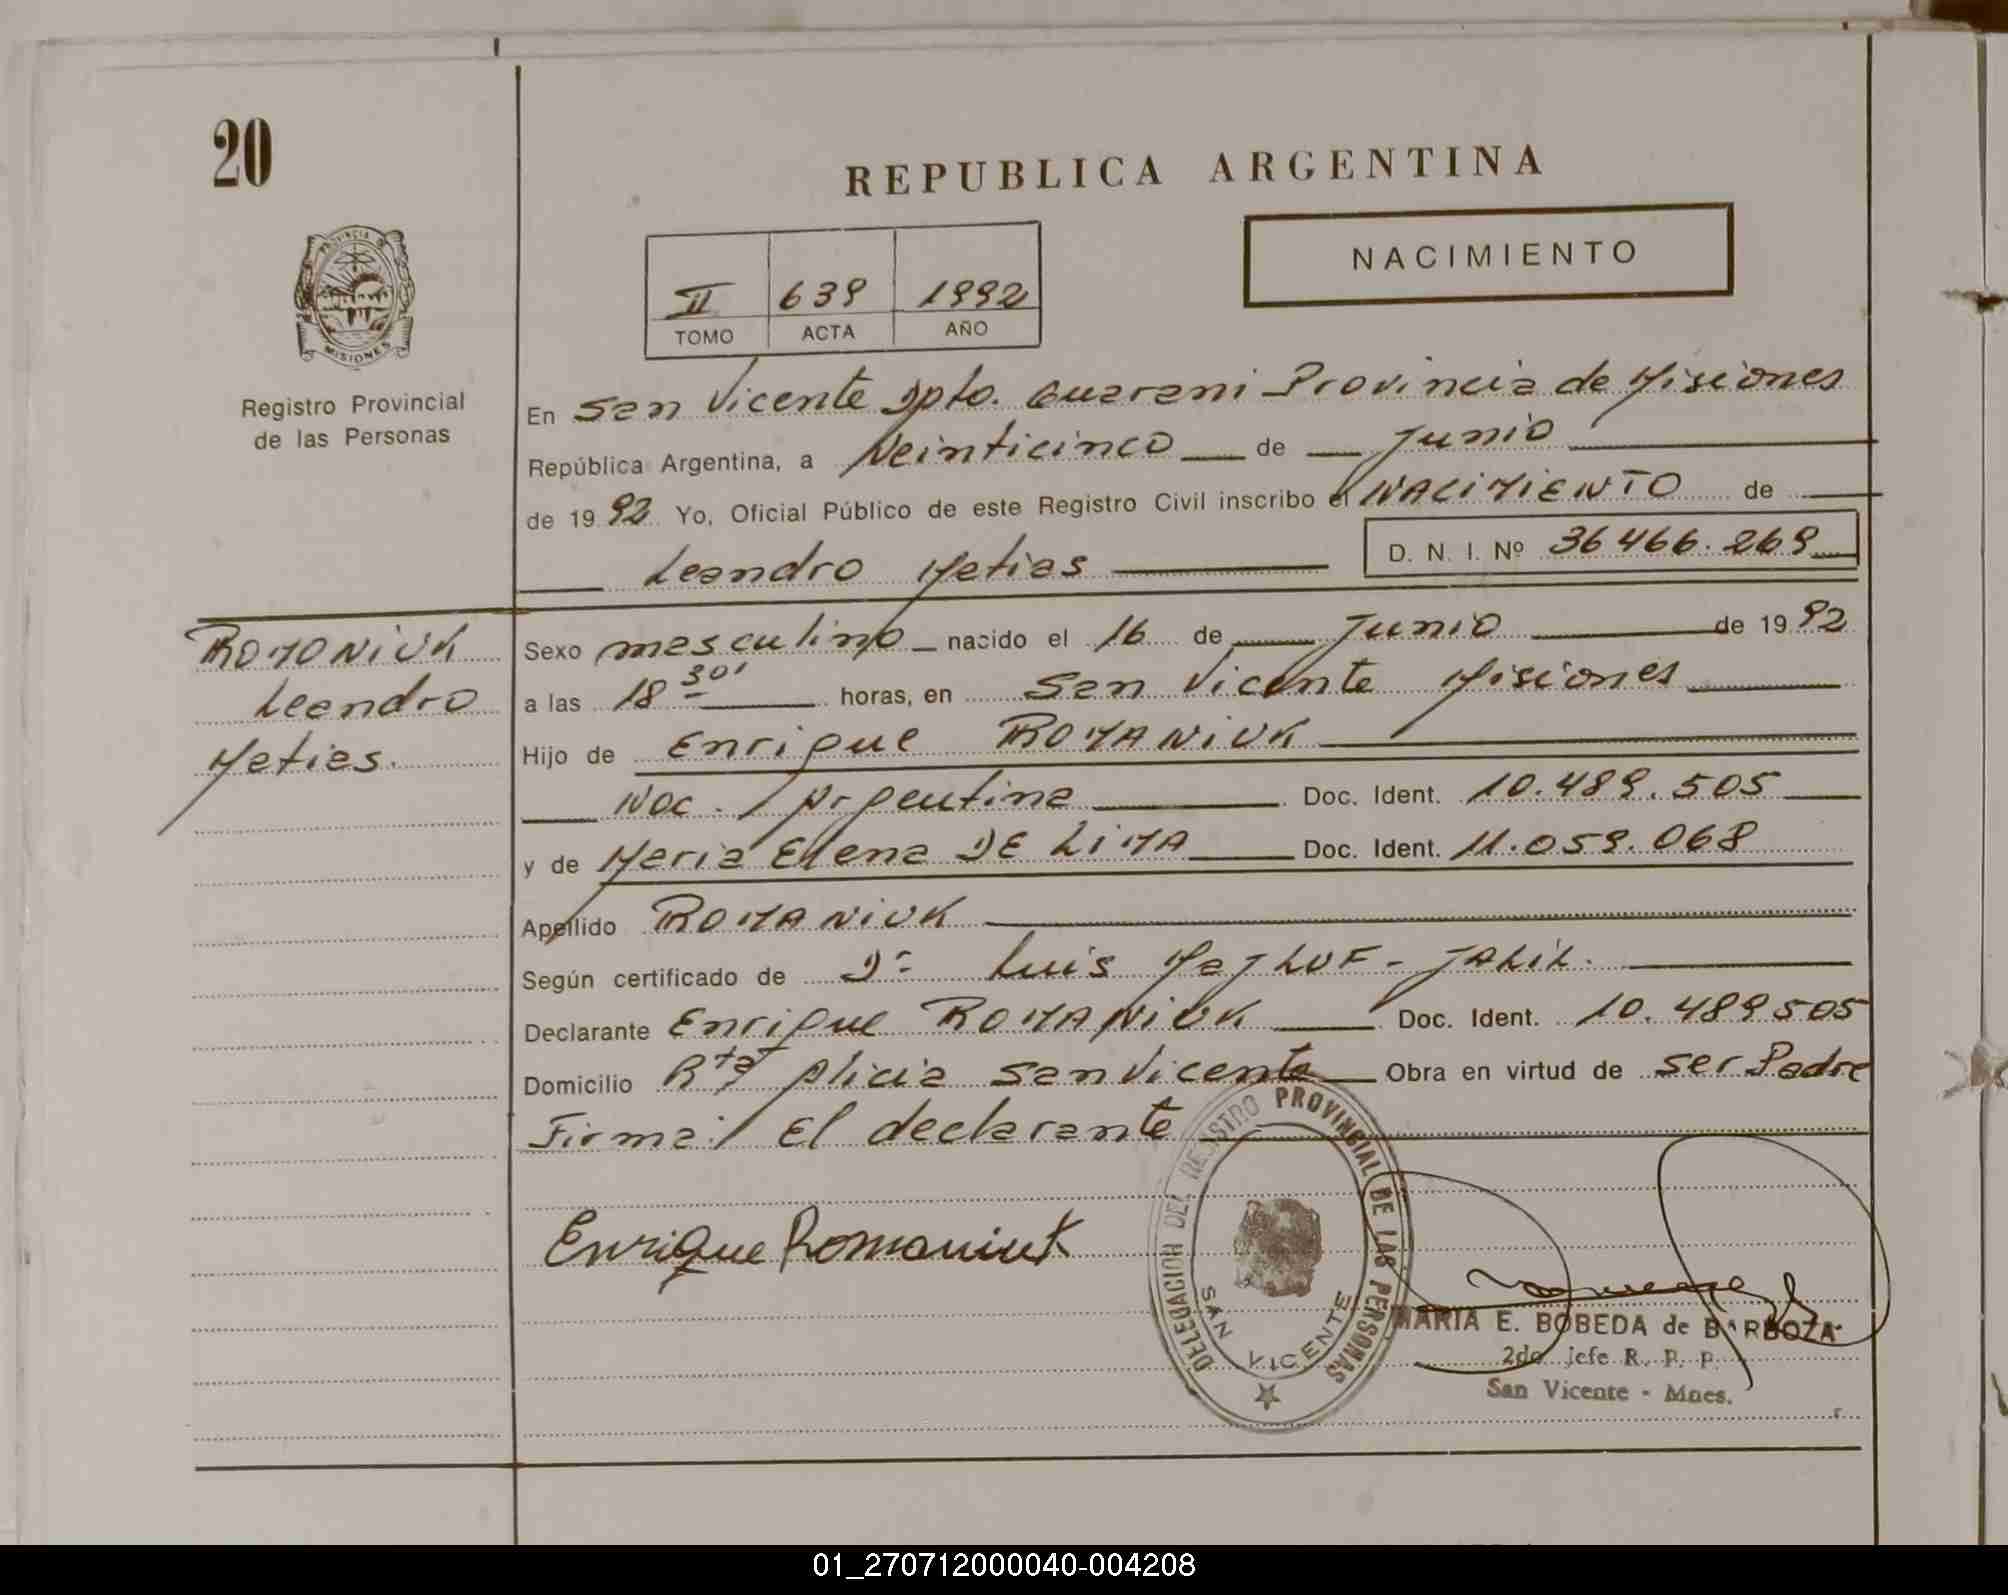 20
REPUBLICA ARGENTINA
NACIMIENTO
II 639 1992
TOMO ACTA AÑO
PROVINCIA DE
MISIONES
Registro Provincial
de las Personas
En San Vicente Dpto. Guarani Provincia de Misiones
República Argentina, a Veinticinco de Junio
de 1992 Yo, Oficial Público de este Registro Civil inscribo el NACIMIENTO de
Leandro Matias D. N. I. Nº 36466.269
ROMANIUK
Leandro
Matias.
Sexo masculino nacido el 16 de Junio de 1992
a las 18 30' horas, en San Vicente Misiones
Hijo de Enrique ROMANIUK
Nac. Argentina Doc. Ident. 10.489.505
y de Maria Elena DE LIMA Doc. Ident. 11.059.068
Apellido ROMANIUK
Según certificado de Dr Luis MajLUF - JALIL.
Declarante Enrique ROMANIUK Doc. Ident. 10.489505
Domicilio Rta Alicia San Vicente Obra en virtud de ser Padre
Firma: El declarante
Enrique Romaniuk
DELEGACION DEL REGISTRO PROVINCIAL DE LAS PERSONAS
SAN VICENTE
MARIA E. BOBEDA de BARBOZA
2do Jefe R. P. P.
San Vicente - Mnes.
01_270712000040-004208